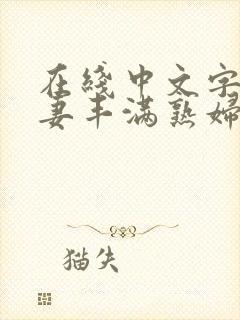 在綫中文字
妻丰满熟婦
猫失